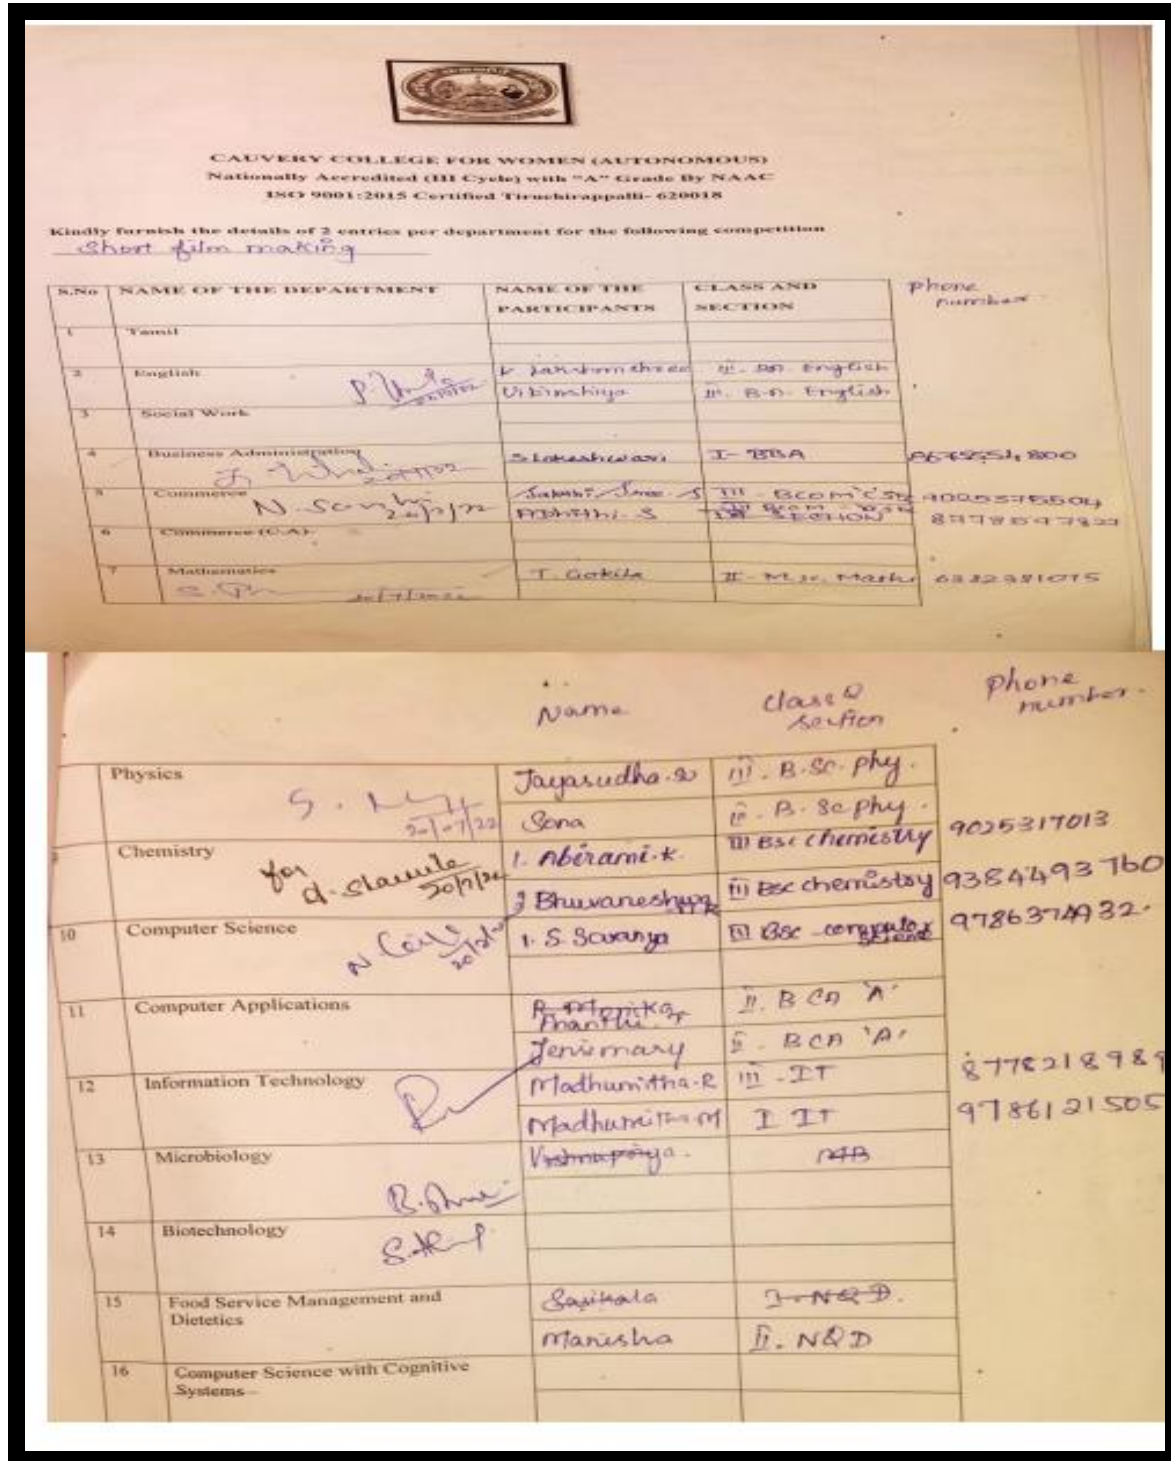 CAUVERY COLLEGE FOR WOMEN (AUTONOMOUS)
Nationally Accredited (III Cycle) with "A" Grade By NAAC
ISO 9001:2015 Certified Tiruchirappalli- 620018
Kindly furnish the details of 2 entries per department for the following competition
Short film making
S.No NAME OF THE DEPARTMENT NAME OF THE PARTICIPANTS CLASS AND SECTION phone number
1 Tamil
2 English
III. BA English
II. B.A. English
3 Social Work
4 Business Administration S Lokeshwari I- BBA
5 Commerce
SECTION
6 Commerce (C.A)
7 Mathematics T. Gokila II- M.sc. Maths 6382981075
Name Class & section Phone number.
Physics Jayasudha.S III. B.Sc. phy.
20/07/22 Sona II. B. Sc phy.
Chemistry 1. Abirami.k. III Bsc chemistry 9025317013
for 20/7/22 2 Bhuvaneshwari III Bsc chemistry 9384493760
10 Computer Science 1. S. Saranya III Bsc computer science 9786374932.
11 Computer Applications II. BCA 'A'
Jenimary II. BCA 'A'
12 Information Technology Madhumitha.R III -IT 8778218989
Madhumitha M I IT 9786121505
13 Microbiology Vishnupriya. MB
14 Biotechnology
15 Food Service Management and Dietetics Sasikala I- N&D.
Manisha II. N&D
16 Computer Science with Cognitive Systems